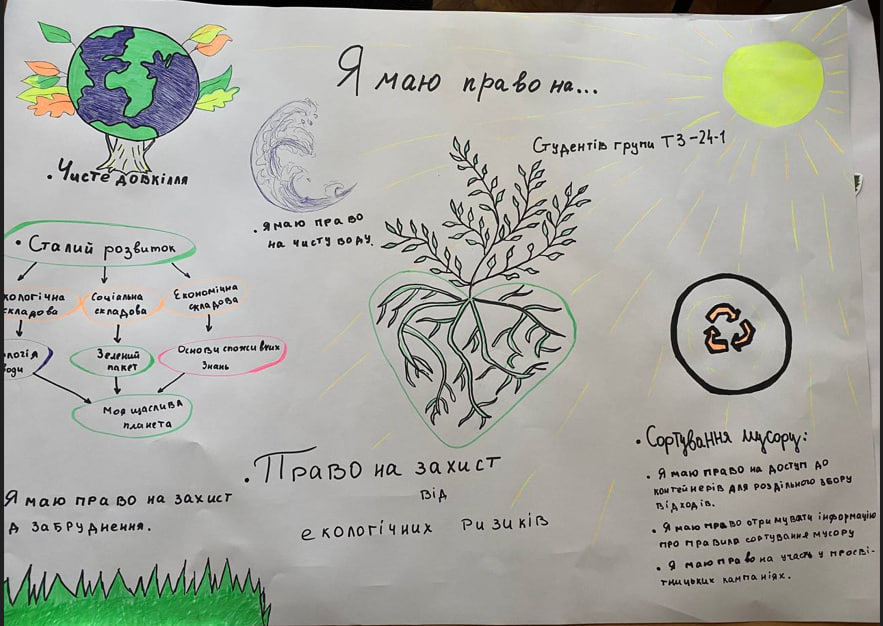 Я маю право на...
Студентів групи ТЗ-24-1
• Чисте довкілля
• Я маю право
на чисту воду.
• Сталий розвиток
кологічна
складова
Соціальна
складова
Економічна
складова
ологія
води
Зелений
пакет
Основи споживчих
знань
Моя щаслива
планета
Я маю право на захист
д забруднення.
• Право на захист
від
екологічних ризиків
• Сортування мусору:
• Я маю право на доступ до
контейнерів для роздільного збору
відходів.
• Я маю право отримувати інформацію
про правила сортування мусору
• Я маю право на участь у просві-
тницьких кампаніях.